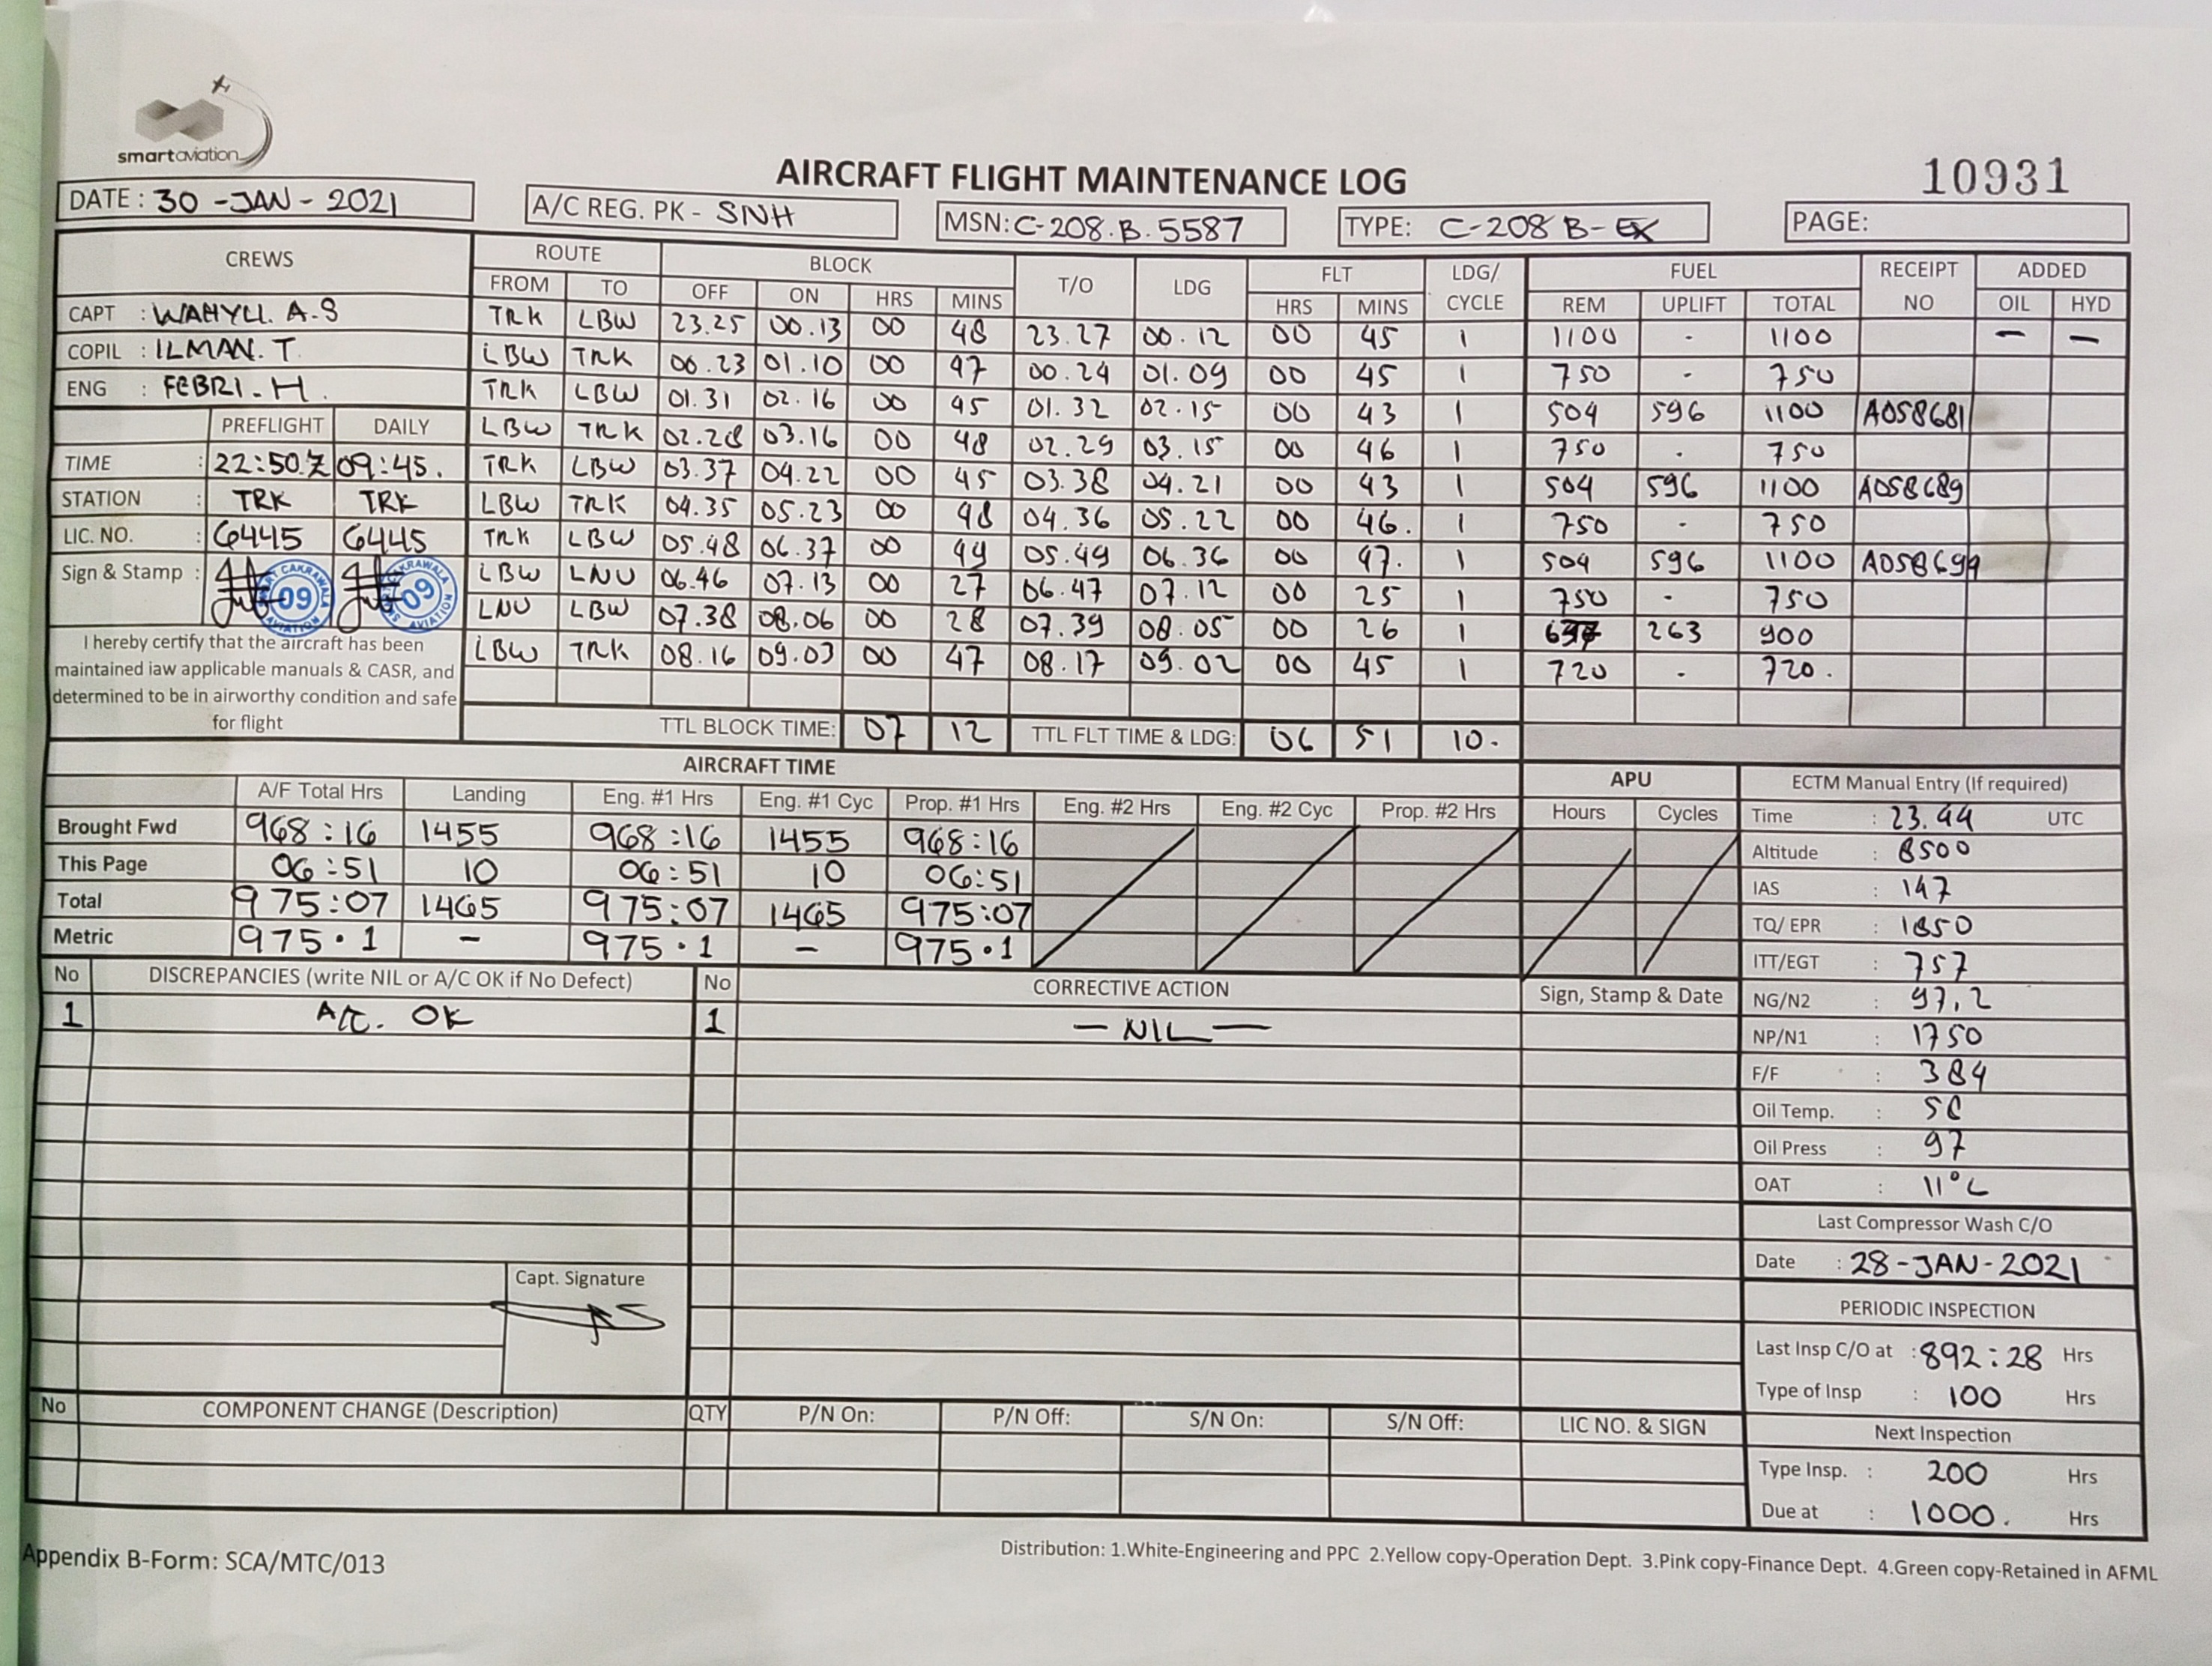 smartaviation
AIRCRAFT FLIGHT MAINTENANCE LOG
10931
DATE : 30 -JAN - 2021 A/C REG. PK - SNH MSN: C-208.B.5587 TYPE: C-208 B-EX PAGE:
CREWS ROUTE BLOCK T/O LDG FLT LDG/ CYCLE FUEL RECEIPT NO ADDED
FROM TO OFF ON HRS MINS HRS MINS REM UPLIFT TOTAL OIL HYD
CAPT : WAHYU. A.S
COPIL : ILMAN. T
ENG : FEBRI. H.
TRK LBW 23.25 00.13 00 48 23.27 00.12 00 45 1 1100 - 1100 — —
LBW TRK 00.23 01.10 00 47 00.24 01.09 00 45 1 750 - 750
TRK LBW 01.31 02.16 00 45 01.32 02.15 00 43 1 504 596 1100 A058681
LBW TRK 02.28 03.16 00 48 02.29 03.15 00 46 1 750 . 750
TRK LBW 03.37 04.22 00 45 03.38 04.21 00 43 1 504 596 1100 A058689
LBW TRK 04.35 05.23 00 48 04.36 05.22 00 46. 1 750 - 750
TRK LBW 05.48 06.37 00 49 05.49 06.36 00 47. 1 504 596 1100 A058699
LBW LNU 06.46 07.13 00 27 06.47 07.12 00 25 1 750 - 750
LNU LBW 07.38 08.06 00 28 07.39 08.05 00 26 1 637 263 900
LBW TRK 08.16 09.03 00 47 08.17 09.02 00 45 1 720 - 720.
PREFLIGHT DAILY
TIME : 22:50.Z 09:45.
STATION : TRK TRK
LIC. NO. : 6445 6445
Sign & Stamp :
CAKRAWALA 09 AVIATION
CAKRAWALA 09 AVIATION
I hereby certify that the aircraft has been
maintained iaw applicable manuals & CASR, and
determined to be in airworthy condition and safe
for flight
TTL BLOCK TIME: 07 12 TTL FLT TIME & LDG: 06 51 10.
AIRCRAFT TIME
A/F Total Hrs Landing Eng. #1 Hrs Eng. #1 Cyc Prop. #1 Hrs Eng. #2 Hrs Eng. #2 Cyc Prop. #2 Hrs
APU
Hours Cycles
Brought Fwd 968:16 1455 968:16 1455 968:16
This Page 06:51 10 06:51 10 06:51
Total 975:07 1465 975:07 1465 975:07
Metric 975.1 - 975.1 - 975.1
ECTM Manual Entry (If required)
Time : 23.44 UTC
Altitude : 8500
IAS : 147
TQ/ EPR : 1850
ITT/EGT : 757
NG/N2 : 97.2
NP/N1 : 1750
F/F : 384
Oil Temp. :
Oil Press : 97
OAT : 11°C
Last Compressor Wash C/O
Date : 28-JAN-2021
PERIODIC INSPECTION
Last Insp C/O at : 892:28 Hrs
Type of Insp : 100 Hrs
Next Inspection
Type Insp. : 200 Hrs
Due at : 1000. Hrs
No DISCREPANCIES (write NIL or A/C OK if No Defect) No CORRECTIVE ACTION Sign, Stamp & Date
1 A/C. OK 1 — NIL —
Capt. Signature
No COMPONENT CHANGE (Description) QTY P/N On: P/N Off: S/N On: S/N Off: LIC NO. & SIGN
Appendix B-Form: SCA/MTC/013
Distribution: 1.White-Engineering and PPC 2.Yellow copy-Operation Dept. 3.Pink copy-Finance Dept. 4.Green copy-Retained in AFML